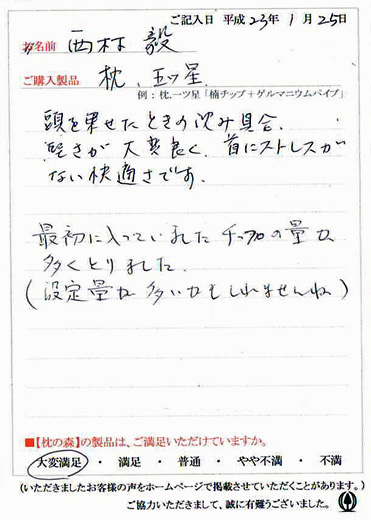 ご記入日 平成23年1月25日
お名前 西村 毅
ご購入製品 枕、五ツ星
例：枕.一ツ星「楠チップ＋ゲルマニウムパイプ」
頭を乗せたときの沈み具合、
堅さが大変良く、首にストレスが
ない快適さです。
最初に入っていましたチップの量は
多くとりました。
（設定量は多いかもしれませんね）
■【枕の森】の製品は、ご満足いただけていますか。
大変満足 ・ 満足 ・ 普通 ・ やや不満 ・ 不満
（いただきましたお客様の声をホームページで掲載させていただくことがあります。）
ご協力いただきまして、誠に有難うございました。